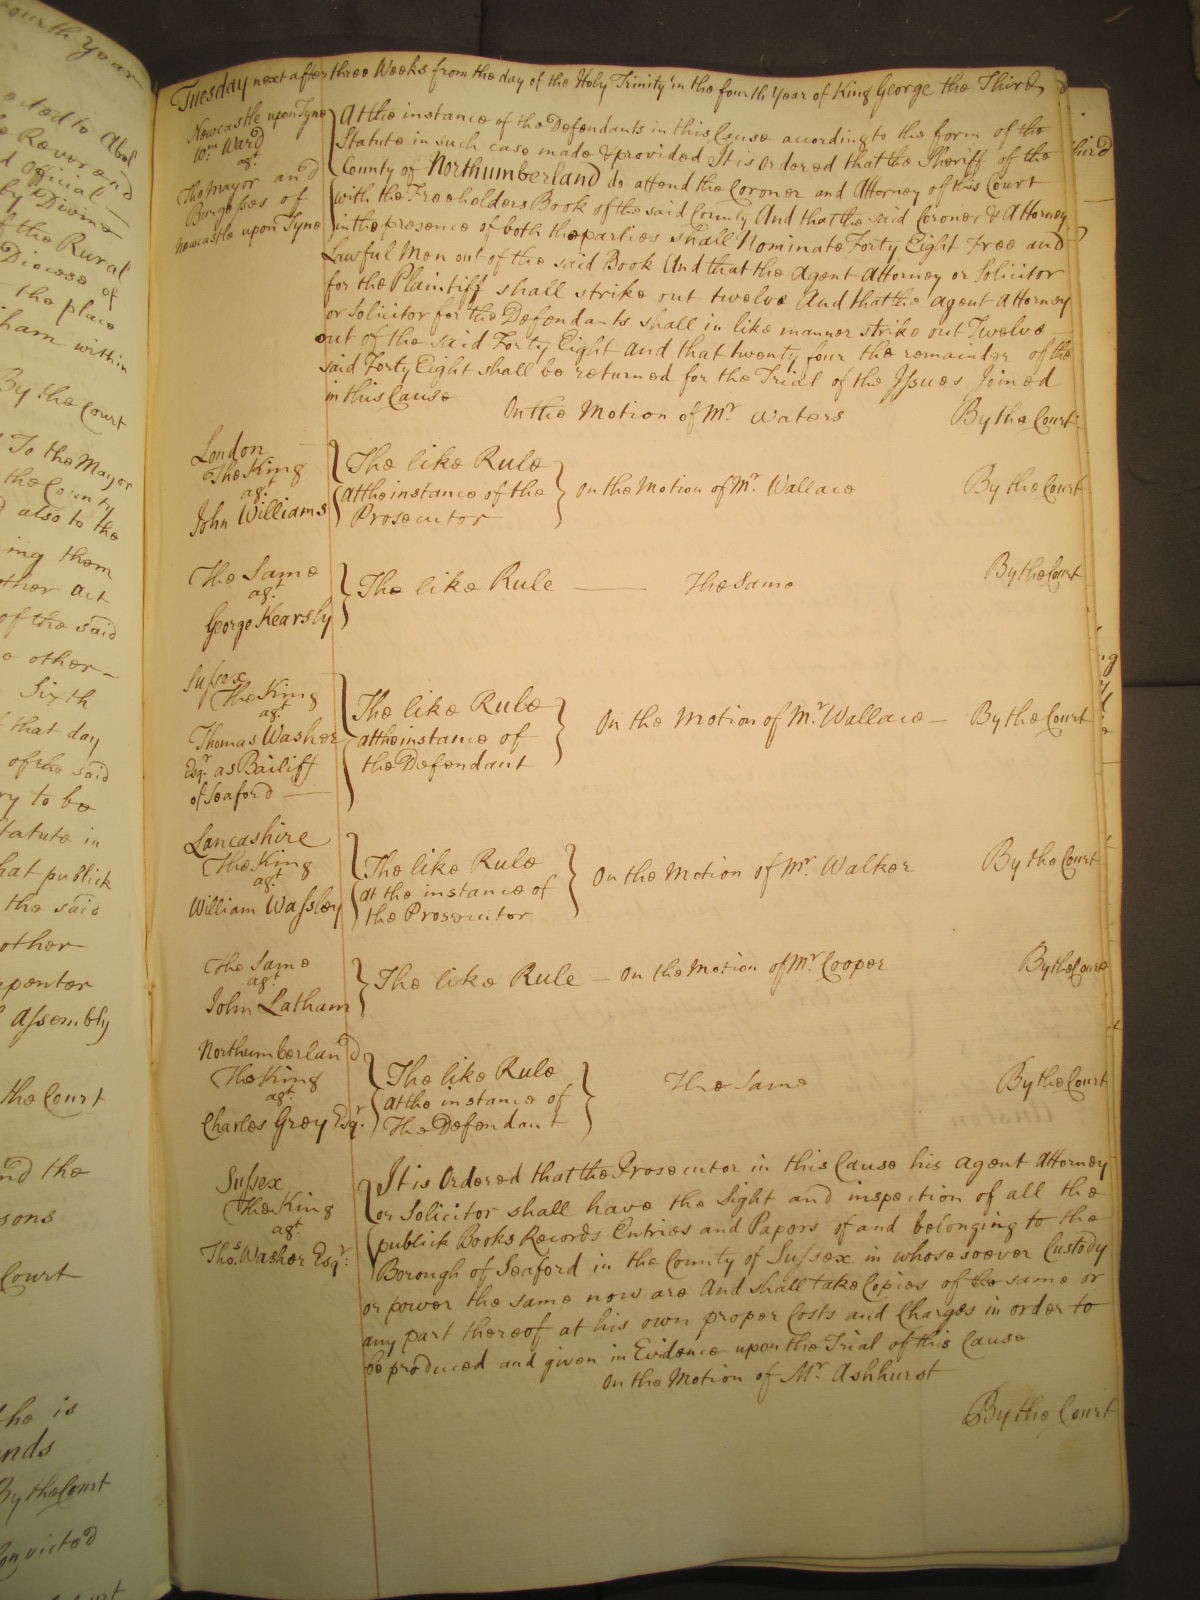 Fourth Year
ected to Abel
he Reverend
d Official
by Divine
f the Rural
Diocese of
the place
ham within
By the Court
To the Mayor
the County
d also to the
ing them
other act
of the said
e other
Sixth
that day
of the said
ry to be
tatute in
hat publick
the said
other
rpenter
Assembly
the Court
nd the
sons
Court
he is
nds
By the Court
Convicted
Tuesday next after three Weeks from the day of the Holy Trinity in the fourth Year of King George the Third
Newcastle upon Tyne
Wm. Ward
agt.
The Mayor and
Burgesses of
Newcastle upon Tyne
At the instance of the Defendants in this Cause according to the form of the
Statute in such case made & provided It is Ordered that the Sheriff of the
County of Northumberland do attend the Coroner and Attorney of this Court
with the Freeholders Book of the said County And that the said Coroner & Attorney
in the presence of both the parties shall Nominate Forty Eight Free and
Lawful Men out of the said Book And that the Agent Attorney or Solicitor
for the Plaintiff shall strike out twelve And that the Agent Attorney
or Solicitor for the Defendants shall in like manner strike out Twelve
out of the said Forty Eight And that twenty four the remainder of the
said Forty Eight shall be returned for the Trial of the Issues Joined
in this Cause On the Motion of Mr. Waters By the Court
London
The King
agt.
John Williams
The like Rule
at the instance of the
Prosecutor
On the Motion of Mr. Wallace By the Court
The Same
agt.
George Kearsly
The like Rule — The Same By the Court
Sussex
The King
agt.
Thomas Washer
Esqr. as Bailiff
of Seaford
The like Rule
at the instance of
the Defendant
On the Motion of Mr. Wallace — By the Court
Lancashire
The King
agt.
William Wassley
The like Rule
at the instance of
the Prosecutor
On the Motion of Mr. Walker By the Court
The Same
agt.
John Latham
The like Rule — On the Motion of Mr. Cooper By the Court
Northumberland
The King
agt.
Charles Grey Esqr.
The like Rule
at the instance of
the Defendant
The Same By the Court
Sussex
The King
agt.
Thos. Washer Esqr.
It is Ordered that the Prosecutor in this Cause his Agent Attorney
or Solicitor shall have the Sight and inspection of all the
publick Books Records Entries and Papers of and belonging to the
Borough of Seaford in the County of Sussex in whose soever Custody
or power the same now are And shall take Copies of the same or
any part thereof at his own proper Costs and Charges in order to
be produced and given in Evidence upon the Trial of this Cause
On the Motion of Mr. Ashhurst
By the Court